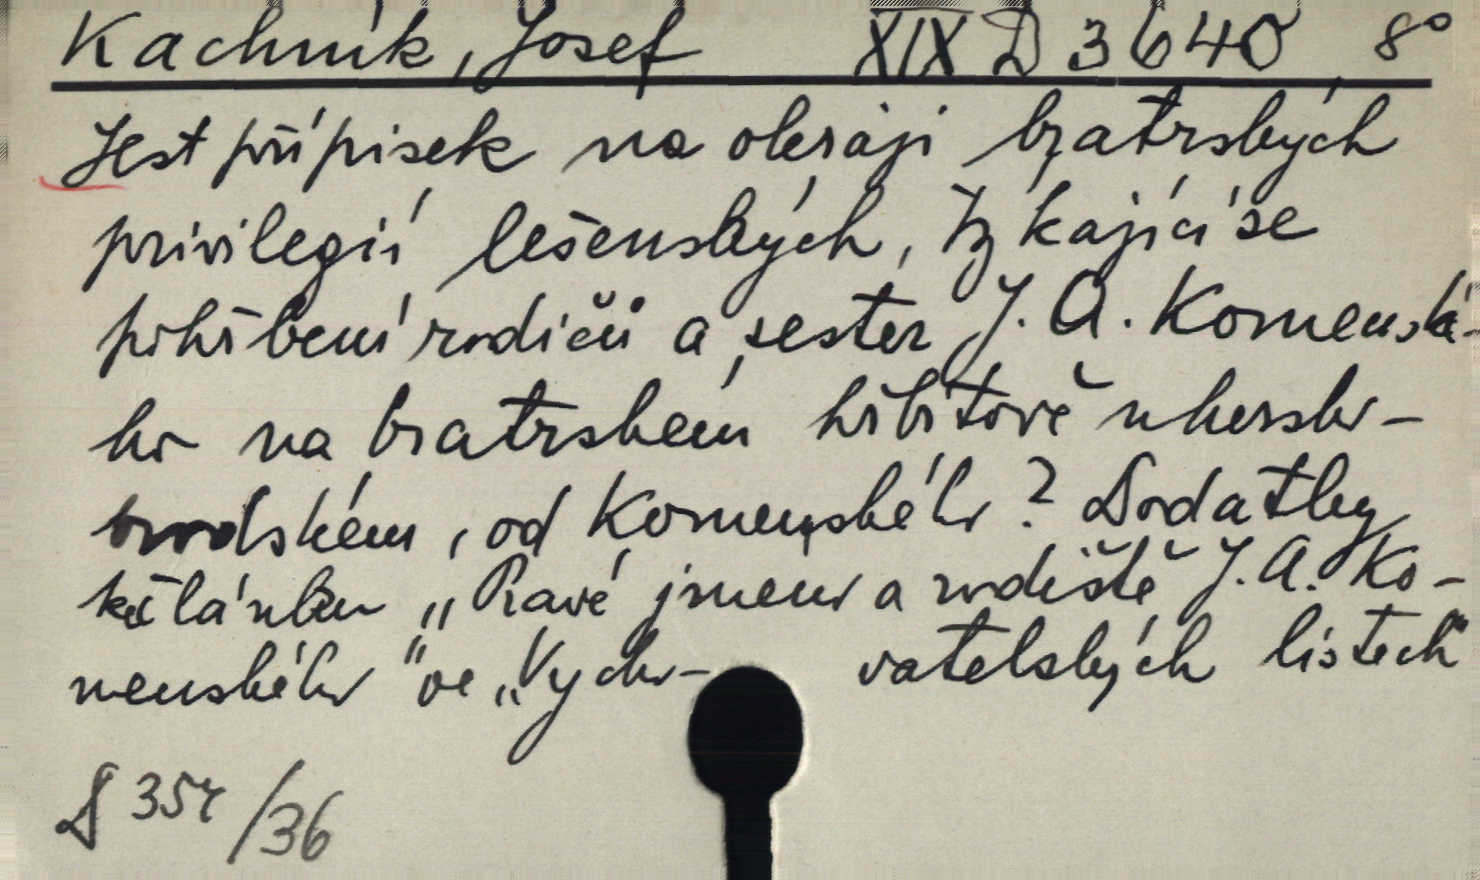 Kachník, Josef XIX D 3640, 8°
Jest přípisek na okraji bratrských
privilegií lešenských, týkající se
pohřbení rodičů a sester J. A. Komenské-
ho na bratrském hřbitově uhersko-
brodském, od Komenského? Dodatky
k článku „Pravé jmeno a rodiště J. A. Ko-
menského" ve „Vycho- vatelských listech"
D 354/36